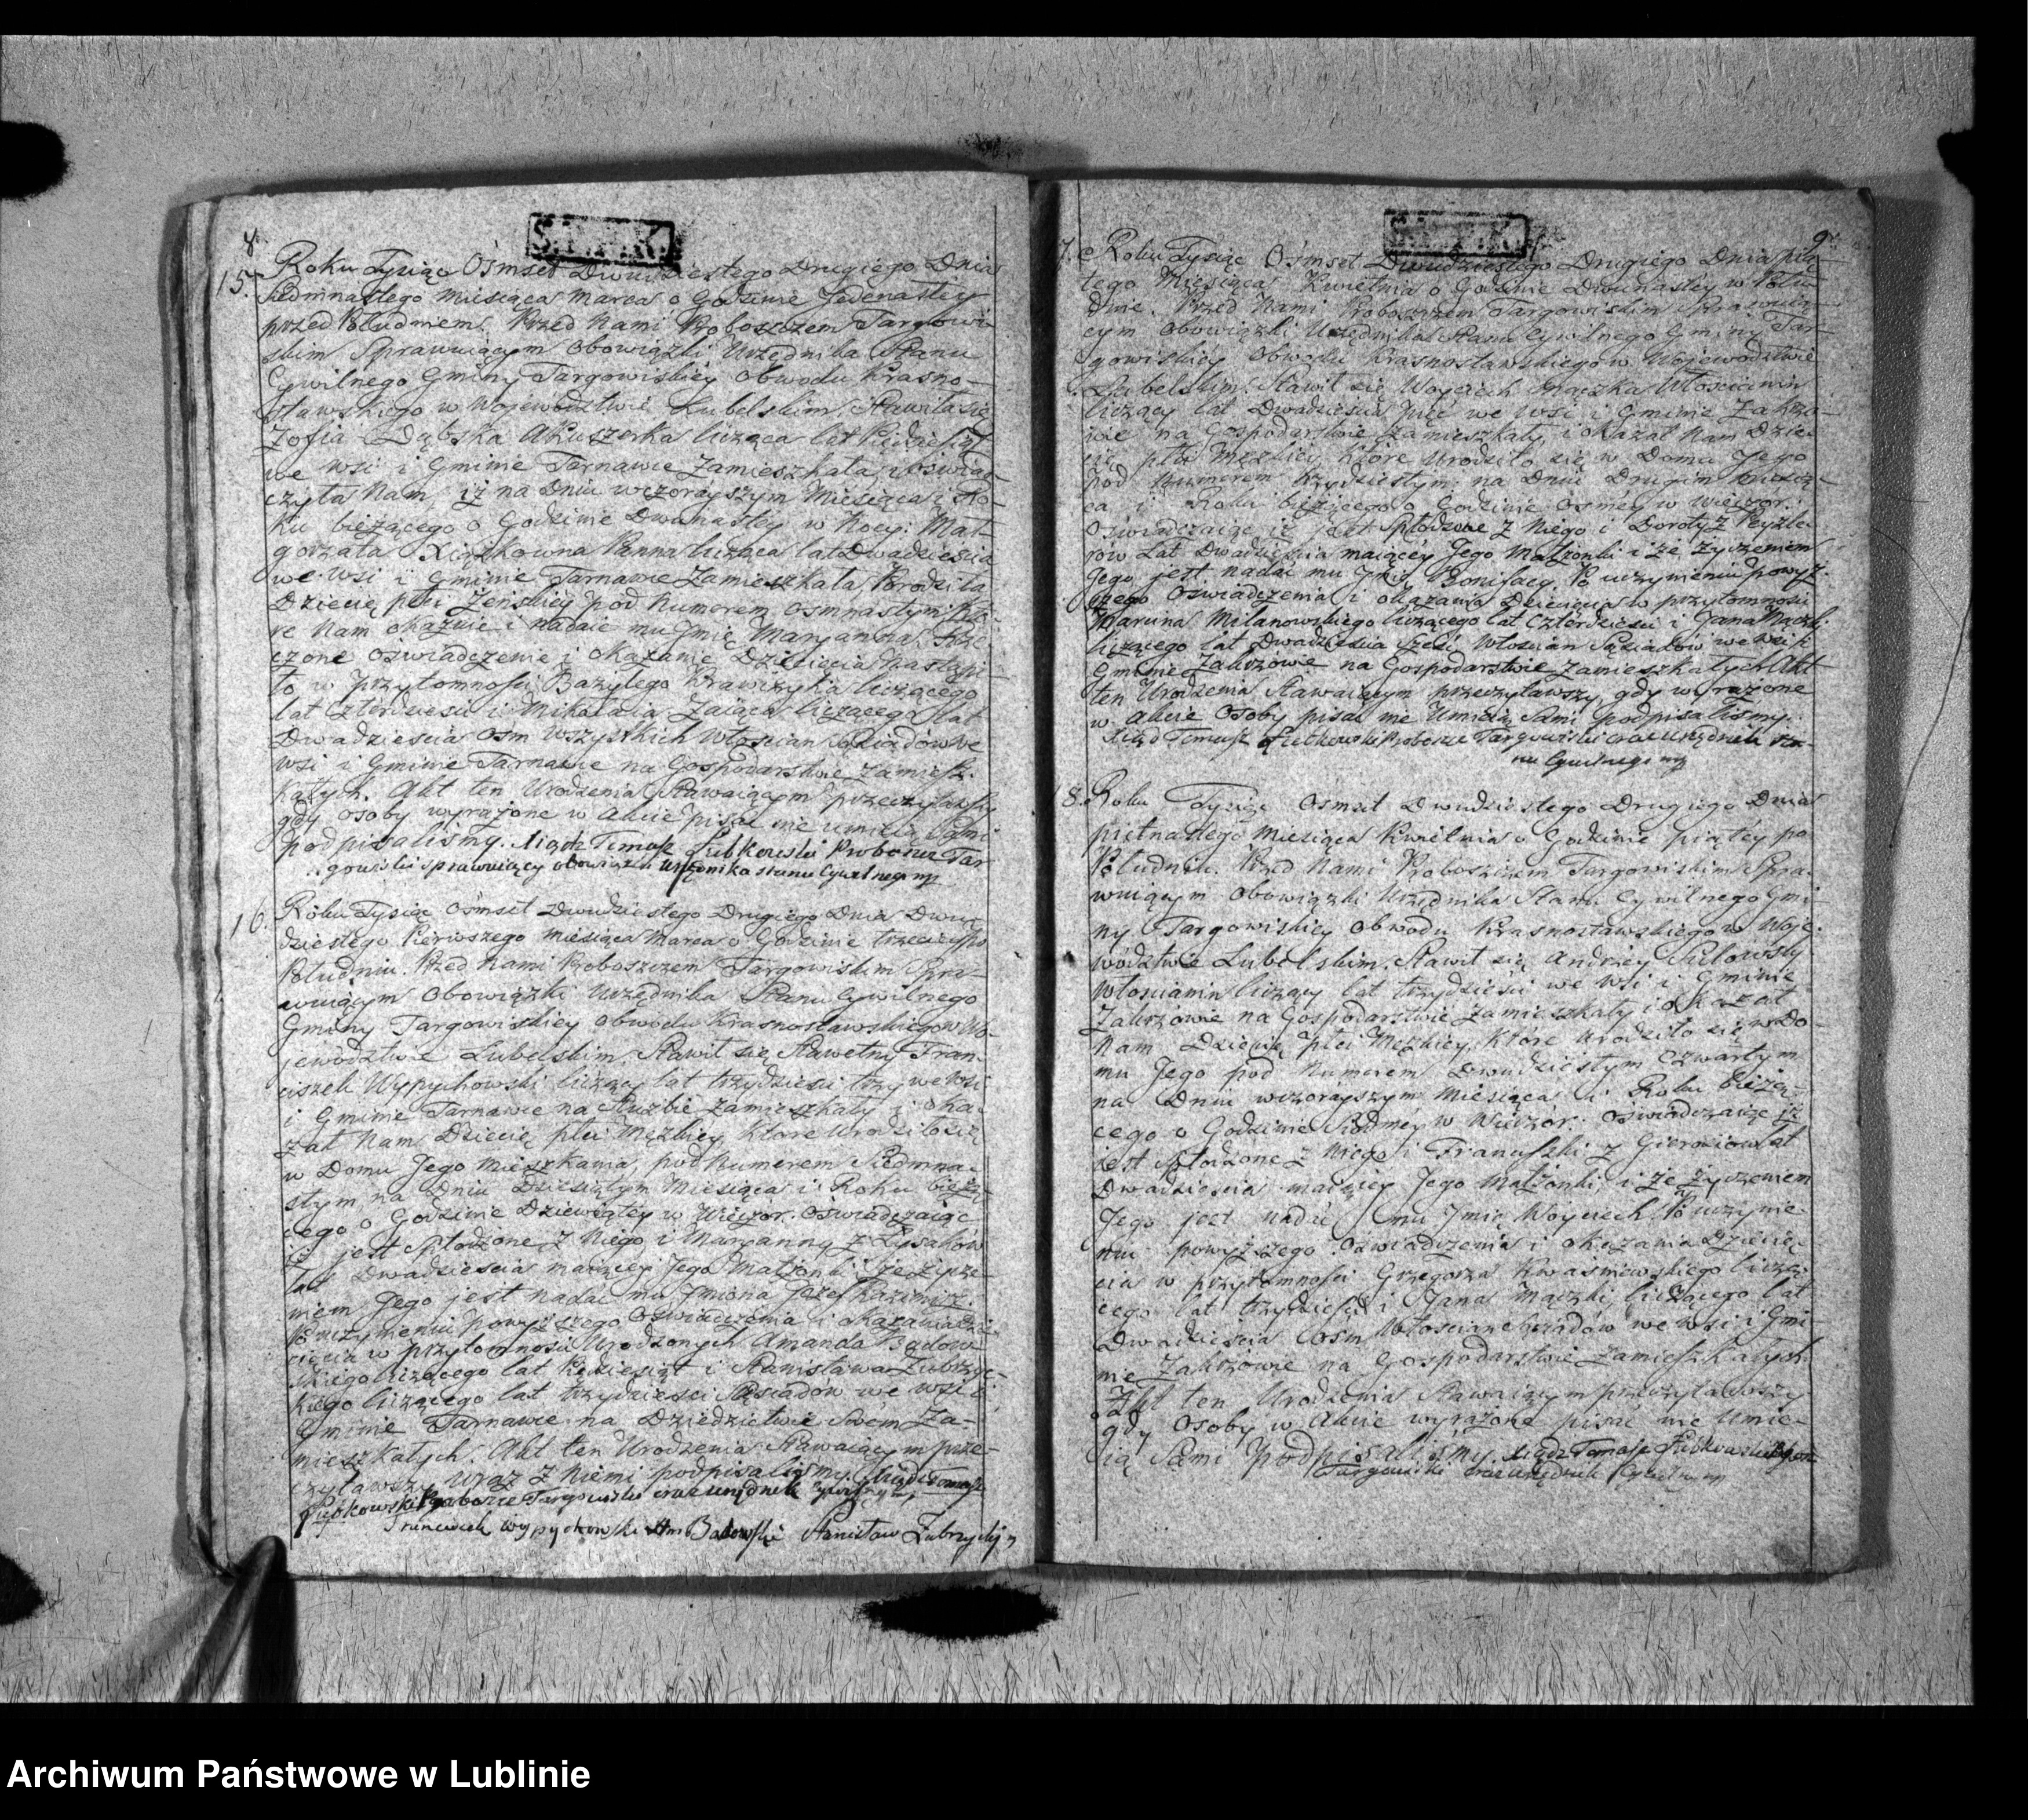 8
15. Roku Tysiąc Ośmset Dwudziestego Drugiego Dnia
Siedmnastego Miesiąca Marca o Godzinie Jedenastey
przed Południem. Przed Nami Proboszczem Targowi-
skim Sprawuiącym obowiązki Urzędnika Stanu
Cywilnego Gminy Targowiskiey obwodu Krasno-
stawskiego w Wojewodztwie Lubelskim, Stawiła się
Zofia Dąbska Akuszerka licząca lat Pięćdziesiąt
we wsi i Gminie Tarnawie Zamieszkała, i oświad-
czyła Nam, iż na Dniu wczorayszym Miesiąca i Ro-
ku bieżącego o Godzinie Dwunastey w Nocy: Mał-
gorzata Panna licząca lat Dwadzieścia
we wsi i Gminie Tarnawie Zamieszkała, Porodziła
Dziecię płci Żeńskiey pod Numerem osmnastym, któ-
re Nam okazuie i nadaie mu Jmię Maryanna, Rze-
czone oświadczenie i okazanie Dziecięcia Nastąpi-
ło w przytomności Bazylego Krawczyka liczącego
lat czterdzieści i Mikołaia Zaiąca liczącego lat
Dwadzieścia ośm wszystkich Włościan Sąsiadów we
wsi i Gminie Tarnawie na Gospodarstwie Zamiesz-
kałych. Akt ten Urodzenia Stawaiącym przeczytawszy
gdy osoby wyrażone w Akcie pisać nie umieią Sami
podpisaliśmy. Xiądz Tomasz Lubkowski Proboszcz Tar
gowiski sprawuiący obowiązki urzędnika stanu Cywilnego mp
16. Roku Tysiąc Ośmset Dwudziestego Drugiego Dnia Dwu-
dziestego Pierwszego Miesiąca Marca o Godzinie trzeciey po
Południu. Przed Nami Proboszczem Targowiskim Spra-
wuiącym obowiązki Urzędnika Stanu Cywilnego
Gminy Targowiskiey obwodu Krasnostawskiego w Wo-
jewodztwie Lubelskim. Stawił się Sławetny Fran-
ciszek Wypychowski liczący lat trzydzieści trzy we wsi
i Gminie Tarnawie na Służbie Zamieszkały i oka-
zał Nam Dziecię płci Męzkiey, które urodziło się
w Domu Jego Mieszkania, pod Numerem Siedmna-
stym, na Dniu Dziesiątym Miesiąca i Roku bieżą-
cego o Godzinie Dziewiątey w Wieczor. oświadczaiąc
iż jest Spłodzone z Niego i Maryanny z Lysaków
lat Dwadzieścia maiącey Jego Małżonki i że życze-
niem Jego jest nadać mu Jmiona Józef Kazimirz.
Po uczynieniu powyższego oświadczenia i okazania Dzie-
cięcia w przytomności Urodzonych Amanda Badow-
skiego liczącego lat i Stanisława Zubrzyc-
kiego liczącego lat trzydzieści Sąsiadów we wsi i
Gminie Tarnawie na Dziedzictwie Swem Za-
mieszkałych. Akt ten Urodzenia Stawaiącym prze-
czytawszy wraz z Niemi podpisaliśmy. Xiądz Tomasz
Lubkowski Proboszcz Targowiski oraz urzędnik Cywilny mp
Franciszek Wypychowski Am Badowski Stanisław Zubrzycki
9
7. Roku Tysiąc Ośmset Dwudziestego Drugiego Dnia pią-
tego Miesiąca Kwietnia o Godzinie Dwunastey w Połu-
dnie. Przed Nami Proboszczem Targowiskim Sprawuią-
cym obowiązki Urzędnika Stanu Cywilnego Gminy Tar-
gowiskiey obwodu Krasnostawskiego w Wojewodztwie
Lubelskim. Stawił się Woyciech Mączka Włościanin
liczący lat Dwadzieścia pięć we wsi i Gminie Zakrzo-
wie na Gospodarstwie zamieszkały, i okazał Nam Dzie-
cię płci Męzkiey, które Urodziło się w Domu Jego
pod Numerem trzydziestym na Dniu Drugim Miesią-
ca i Roku bieżącego o Godzinie osmey w Wieczor.
oświadczaiąc iż jest Spłodzone z Niego i Doroty z
rów lat Dwadzieścia maiącey Jego Małżonki i że życzeniem
Jego jest nadać mu Jmię Bonifacy. Po uczynieniu powyż-
szego oświadczenia i okazania Dziecięcia w przytomności
Marcina Milanowskiego liczącego lat czterdzieści i Jana Mączki
liczącego lat Dwadzieścia sześć Włościan Sąsiadów we wsi i
Gminie Zakrzowie na Gospodarstwie zamieszkałych Akt
ten Urodzenia Stawaiącym przeczytawszy gdy wyrażone
w Akcie osoby pisać nie Umieią, Sami podpisaliśmy.
Xiądz Tomasz Lubkowski Proboszcz Targowiski oraz urzędnik sta-
nu Cywilnego mp
8. Roku Tysiąc Ośmset Dwudziestego Drugiego Dnia
piętnastego Miesiąca Kwietnia o Godzinie piątey po
Południu. Przed Nami Proboszczem Targowiskim Spra-
wuiącym obowiązki Urzędnika Stanu Cywilnego Gmi-
ny Targowiskiey obwodu Krasnostawskiego w Woje-
wództwie Lubelskim. Stawił się Andrzey Sulowski
Włościanin liczący lat trzydzieści we wsi i Gminie
Zakrzowie na Gospodarstwie zamieszkały i okazał
Nam Dziecię płci Męzkiey, które urodziło się w Do-
mu Jego pod Numerem Dwudziestym czwartym
na Dniu wczorayszym Miesiąca i Roku bieżą-
cego o Godzinie Siódmey w Wieczór. oświadczaiąc iż
jest Spłodzone z Niego i Franciszki z lat
Dwadzieścia maiącey Jego Małżonki, i że życzeniem
Jego jest nadać mu Jmię Woyciech. Po uczynie-
niu powyższego oświadczenia i okazania Dziecię-
cia w przytomności Grzegorza Kwaśniewskiego liczą-
cego lat trzydzieści i Jana Mączki liczącego lat
Dwadzieścia ośm Włościan Sąsiadów we wsi i Gmi-
nie Zakrzowie na Gospodarstwie zamieszkałych.
Akt ten Urodzenia Stawaiącym przeczytawszy
gdy osoby w Akcie wyrażone pisać nie Umie-
ią Sami Podpisaliśmy. Xiądz Tomasz Lubkowski Proboszcz
Targowiski oraz urzędnik Cywilny mp
Archiwum Państwowe w Lublinie